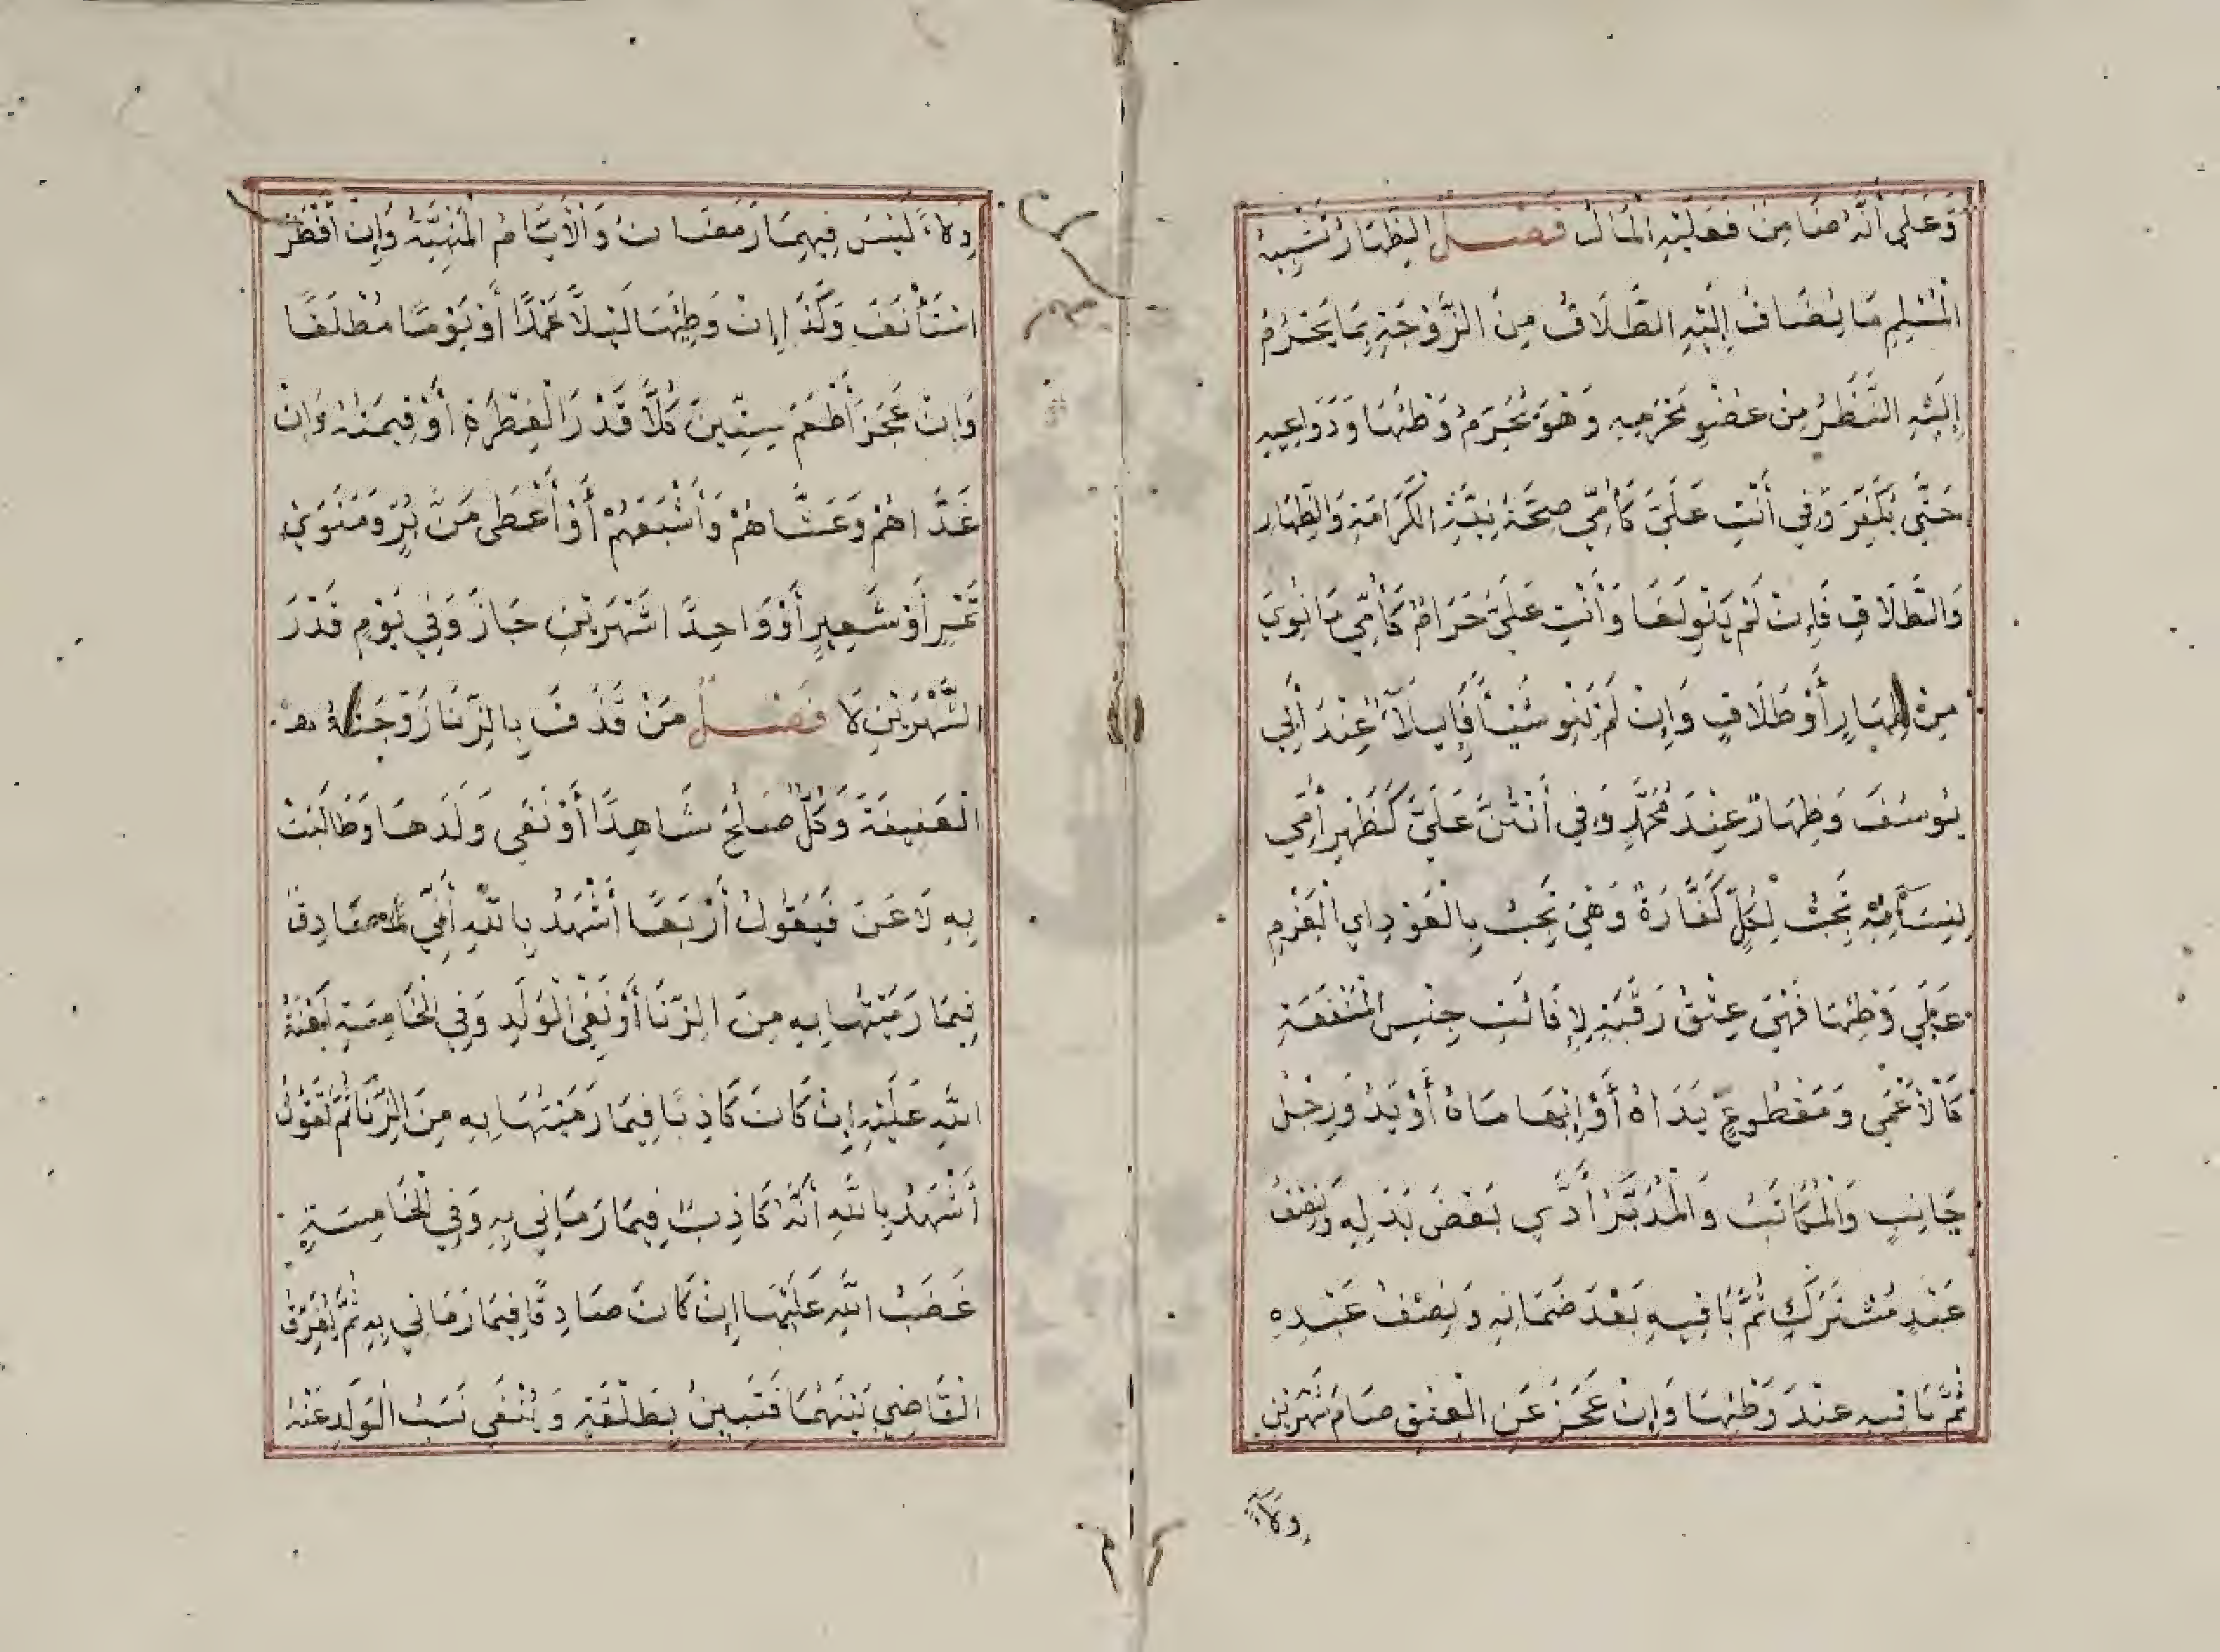 وَعَلَى أَنَّهُ ضَامِنٌ فَعَلَيْهِ الْمَالُ فَصْلٌ الظِّهَارُ تَشْبِيهُ
الْمُسْلِمِ مَا يُضَافُ إِلَيْهِ الطَّلَاقُ مِنَ الزَّوْجَةِ بِمَا يَحْرُمُ
إِلَيْهِ النَّظَرُ مِنْ عُضْوِ مَحْرَمِهِ وَهُوَ يُحَرِّمُ وَطْئَهَا وَدَوَاعِيهِ
حَتَّى يُكَفِّرَ وَفِي أَنْتِ عَلَيَّ كَأُمِّي صِحَّةُ نِيَّةِ الْكَرَامَةِ وَالظِّهَارِ
وَالطَّلَاقِ فَإِنْ لَمْ يَنْوِ لَغَا وَأَنْتِ عَلَيَّ حَرَامٌ كَأُمِّي مَا نُوِيَ
مِنْ ظِهَارٍ أَوْ طَلَاقٍ وَإِنْ لَمْ يَنْوِ شَيْأً فَإِيلَآءٌ عِنْدَ أَبِي
يُوسُفَ وَظِهَارٌ عِنْدَ مُحَمَّدٍ وَفِي أَنْتُنَّ عَلَيَّ كَظَهْرِ أُمِّي
لِنِسَآئِهِ تَجِبُ لِكُلٍّ كَفَّارَةٌ وَهِيَ تَجِبُ بِالْعَوْدِ اي الْعَزْمِ
عَلَى وَطْئِهَا فَهِيَ عِتْقُ رَقَبَةٍ لَا فَائِتِ جِنْسِ الْمَنْفَعَةِ
كَالْأَعْمَى وَمَقْطُوعٍ يَدَاهُ أَوْ إِبْهَامَاهُ أَوْ يَدٌ وَرِجْلٌ
جَانِبٍ وَالْمُكَاتَبُ وَالْمُدَبَّرُ أَدَّى بَعْضَ بَدَلِهِ وَنِصْفُ
عَبْدٍ مُشْتَرَكٍ ثُمَّ بَاقِيهِ بَعْدَ ضَمَانِهِ وَنِصْفُ عَبْدِهِ
ثُمَّ بَاقِيهِ عِنْدَ وَطْئِهَا وَإِنْ عَجَزَ عَنِ الْعِتْقِ صَامَ شَهْرَيْنِ
وِلَآءً
وِلَاءً لَيْسَ فِيهِمَا رَمَضَانُ وَالْأَيَّامُ الْمَنْهِيَّةُ وَإِنْ أَفْطَرَ
اسْتَأْنَفَ وَكَذَا إِنْ وَطِئَهَا لَيْلًا عَمْدًا أَوْ يَوْمًا مُطْلَقًا
وَإِنْ عَجَزَ أَطْعَمَ سِتِّينَ كُلًّا قَدْرَ الْفِطْرَةِ أَوْ قِيمَتَهُ وَإِنْ
غَدَّاهُمْ وَعَشَّاهُمْ وَأَشْبَعَهُمْ أَوْ أَعْطَى مَنَّ بُرٍّ وَمَنَوَيْ
تَمْرٍ أَوْ شَعِيرٍ أَوْ وَاحِدًا شَهْرَيْنِ جَازَ وَفِي يَوْمٍ قَدْرَ
الشَّهْرَيْنِ لَا فَصْلٌ مَنْ قَذَفَ بِالزِّنَا زَوْجَتَهُ
الْعَفِيفَةَ وَكُلٌّ صَلُحَ شَاهِدًا أَوْ نَفَى وَلَدَهَا وَطَالَبَتْ
بِهِ لَاعَنَ فَيَقُولُ أَرْبَعًا أَشْهَدُ بِاللَّهِ أَنِّي لَصَادِقٌ
فِيمَا رَمَيْتُهَا بِهِ مِنَ الزِّنَا أَوْ نَفْيِ الْوَلَدِ وَفِي الْخَامِسَةِ لَعْنَةُ
اللَّهِ عَلَيْهِ إِنْ كَانَ كَاذِبًا فِيمَا رَمَيْتُهَا بِهِ مِنَ الزِّنَا ثُمَّ تَقُولُ
أَشْهَدُ بِاللَّهِ أَنَّهُ كَاذِبٌ فِيمَا رَمَانِي بِهِ وَفِي الْخَامِسَةِ
غَضَبُ اللَّهِ عَلَيْهَا إِنْ كَانَ صَادِقًا فِيمَا رَمَانِي بِهِ ثُمَّ يُفَرِّقُ
الْقَاضِي بَيْنَهُمَا فَتَبِينُ بِطَلْقَةٍ وَيُنْفَى نَسَبُ الْوَلَدِ عَنْهُ